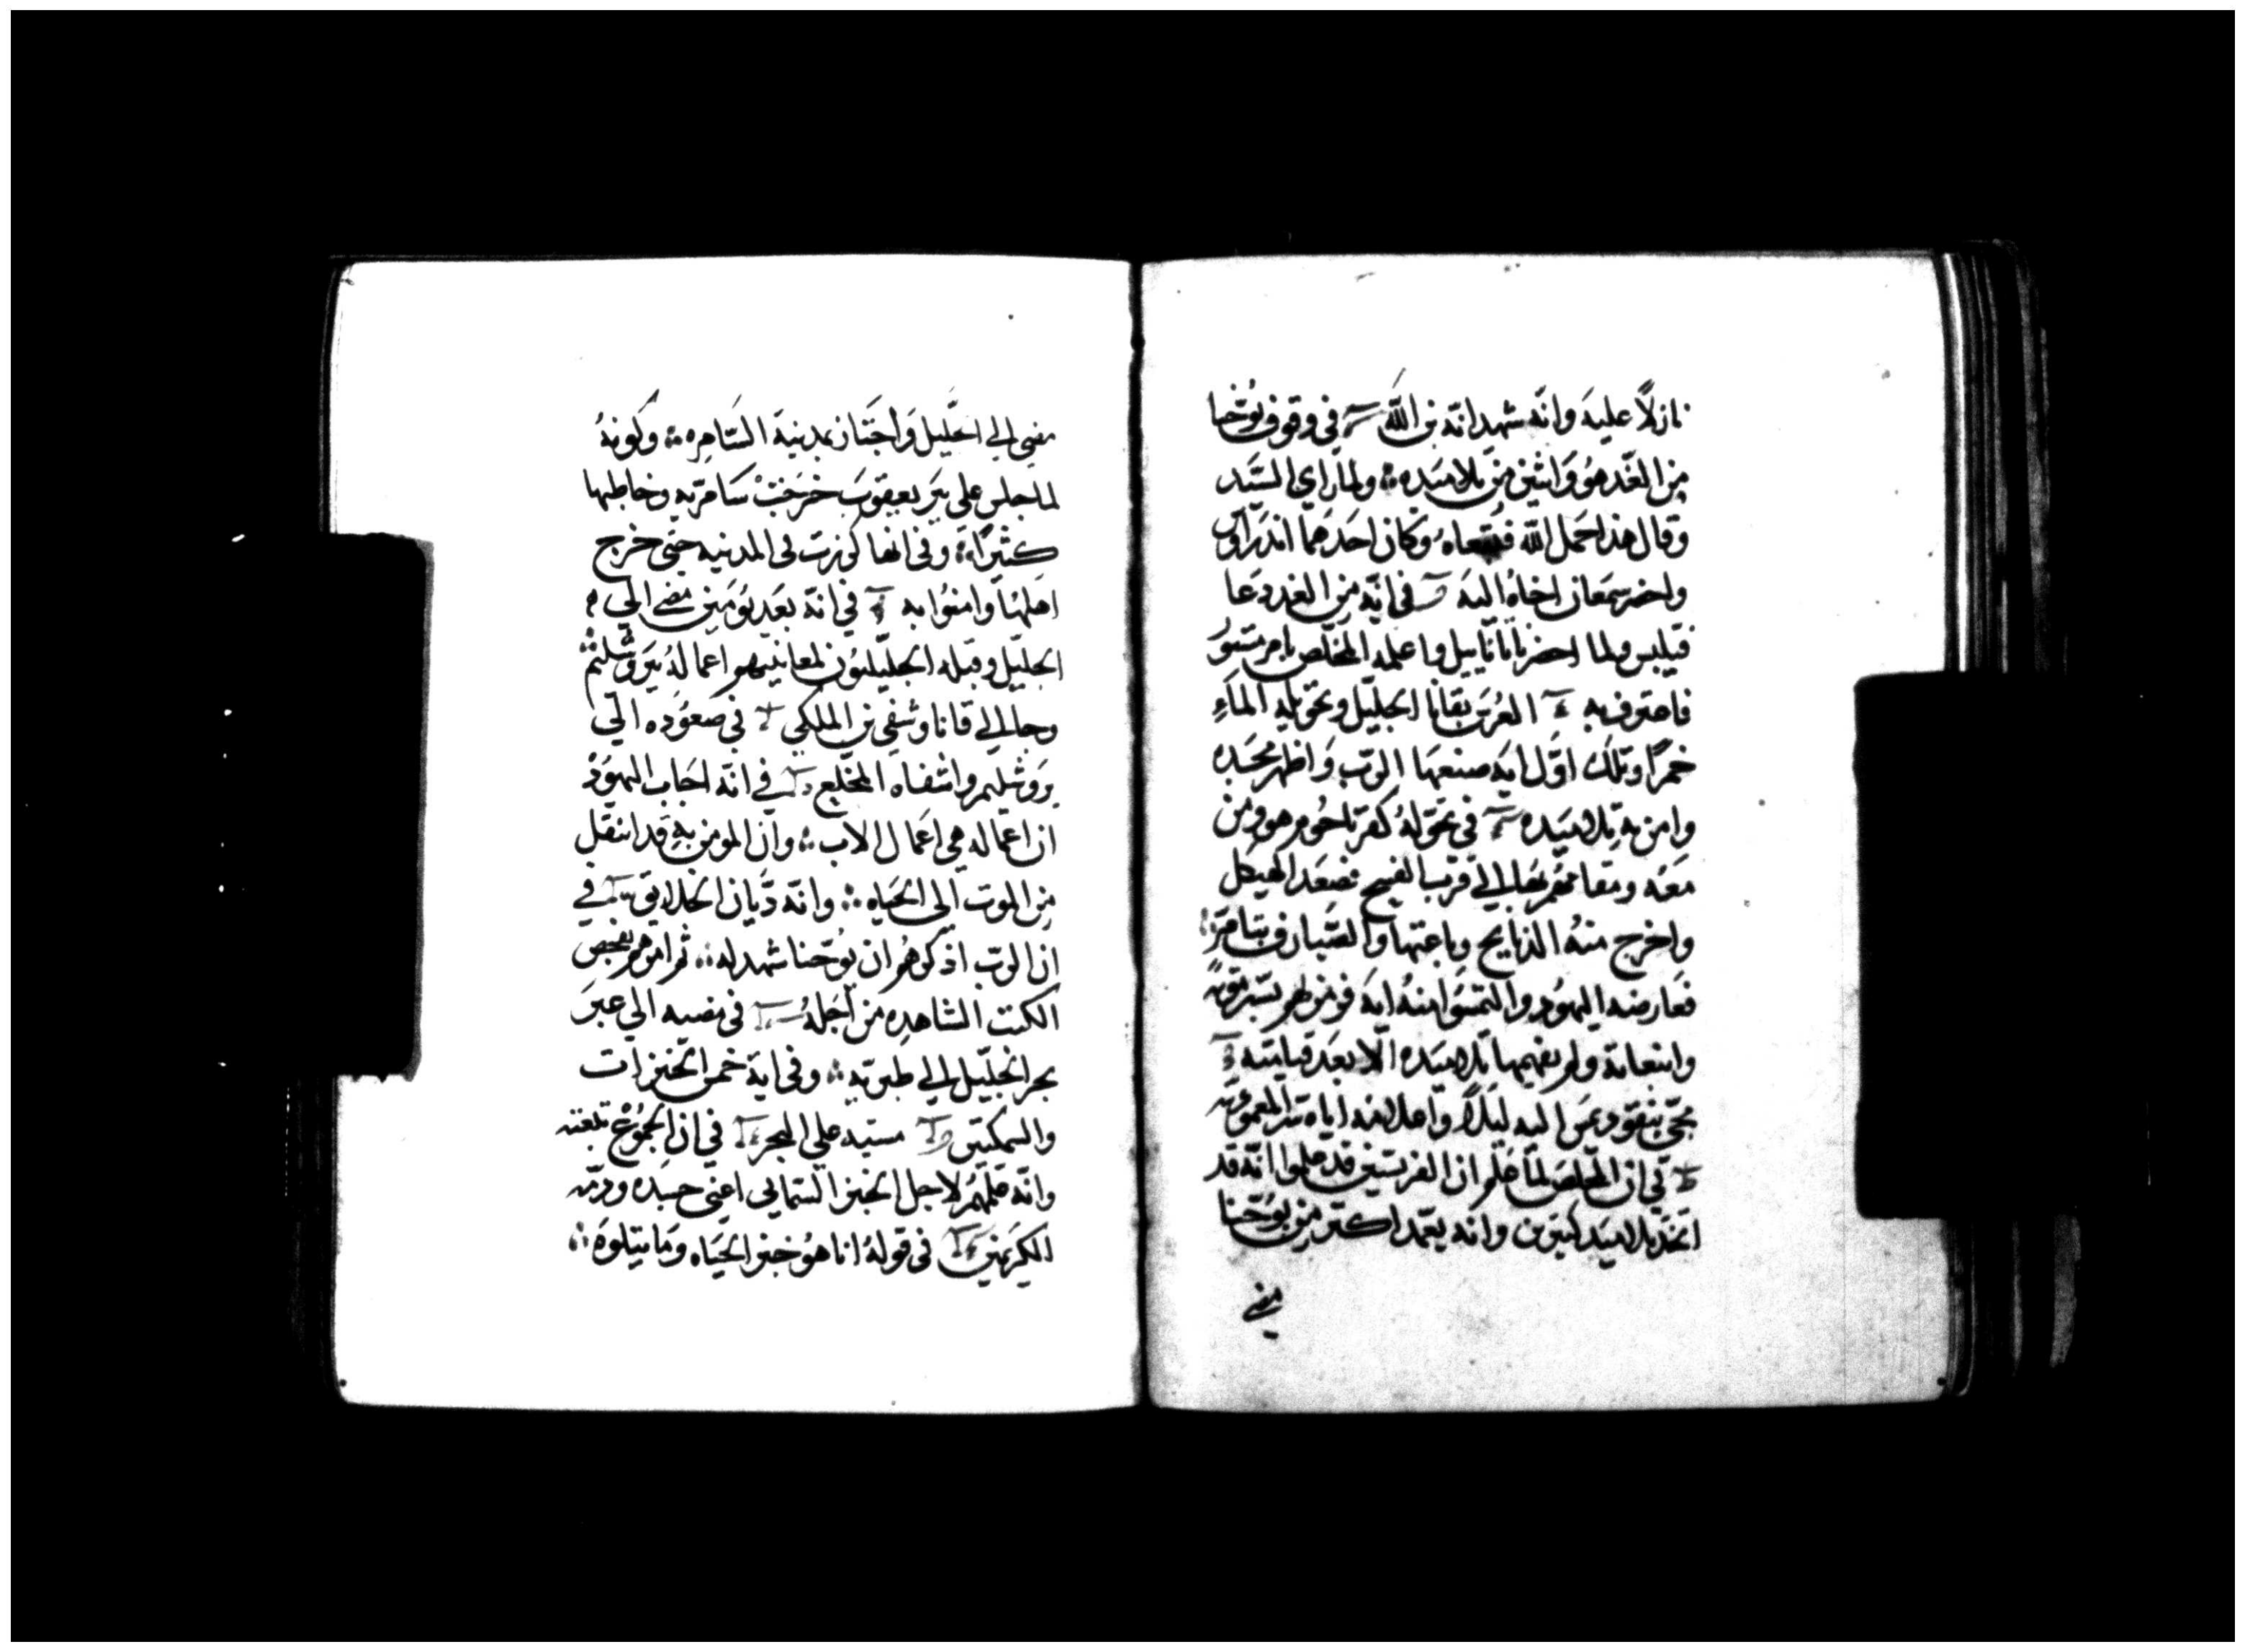 نازلاً عليه وانّه شهد انّه بن اللّه في وقوف يُوحّنا
من الغَد هوُ وَاثنين من تلاميَده ولما راي السَيّد
وقال هذا حَمل اللّه فتبعاهُ وَكان احَدهما اندرَاوس
واحضر سمَعان اخاهُ اليهَ في انّه من الغد دعَا
فيلبس ولما احضر ناثاناييل واعلمه المخلّص بامر مستوُر
فاعترف به العُرس بقانا الجليل وتحويله الماءِ
خمرًا وتلك اوّل ايه صنعهَا الربّ وَاظهر مجَده
وامن به تلاميَده في تحوّلهُ كفر ناحُوم هو ومن
معَه ومقامهُم بهَا الي قرب الفصح فصَعَد الهيكل
واخرج منهُ الدبايح وباعتها والصَيارف بتامرَ
فعَارضه اليهوُد والتمسَوا منهُ ايَه
وانبعاثه ولم يفهمها تلاميَده الّا بعَد قيامته
مجّي نيقوديمَس اليه ليَلاً واعلامَه اياه سّر المعموُديه
في ان المخلّصَ لماّ عَلم ان الفريسَيين قد علموا انّه قد
اتخّد تلاميَد كثيرين وانه يعّمد اكثر من يوُحّنا
مضي
مضي الي الجَليّل وَاجَتاز بمدينة السَّامره وكونهُ
لما جلس علي بيَر يعقوبَ خرَجَتْ سَامَريّه وخاطبها
كثيرًا وفي انها كرزت في المدينه حتي خرج
اهَلهَا وامنوُا به في انّه بعَد يوُمَين مضي الي
الجليّل وقبله الجليّليوُن لمعاينتهم اعماله بيرَوشليَم
وجا الي قانا وشفي بن الملكي في صعوُده الي
يروَشليم واشفاه المخّلع في انّه اجَاب اليهوَد
ان اعمَاله هي اعَمال الاب وان المومن بهِ قد انتقل
من الموت الي الحَياه وانّه ديَّان الخلايق في
ان الربّ اذكرهُم ان يوُحّنا شهد له ثم امرهم بفحص
الكتب الشاهده مَن اجَلهُ في مضيه الي عبرَ
بحر الجليّل الي طبريّه وفي اية خمس الخبزات
والسمكتين مشيه علي البحر في ان الجموُعْ تبعته
وانّه علمهُم لاجل الخبز السّمايي اعني جسده ودمّه
الكريَمين في قولهُ انا هوُ خبز الحَياه وَما يتلوهَ